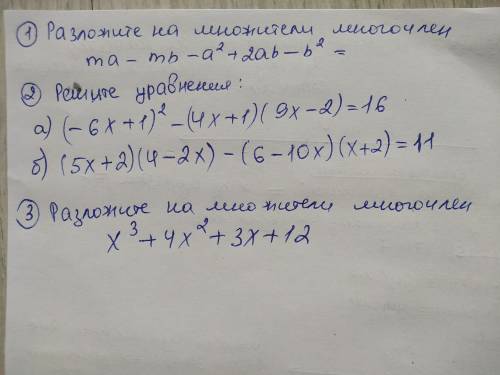 ① Разложите на множители многочлен
ma – mb – a² + 2ab – b² =
② Решите уравнения:
а) (–6x+1)² – (4x+1)(9x–2) = 16
б) (5x+2)(4–2x) – (6–10x)(x+2) = 11
③ Разложите на множители многочлен
x³ + 4x² + 3x + 12